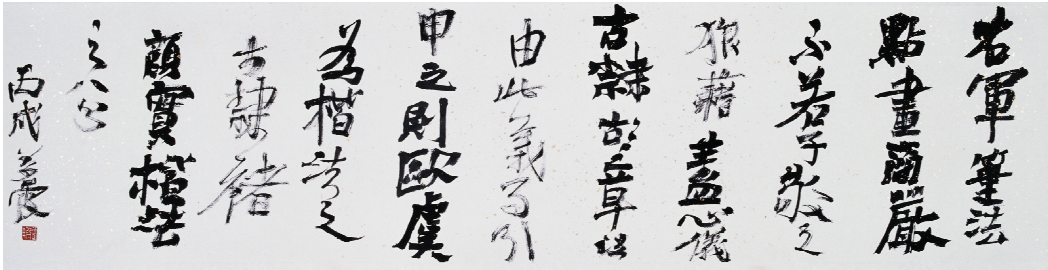 右軍筆法
點畫簡嚴
不若子敬之
狼藉蓋心儀
古隸故章草
由此義可引
申之則歐虞
為楷法之
古隸褚
顏實楷法
之八分
丙戌